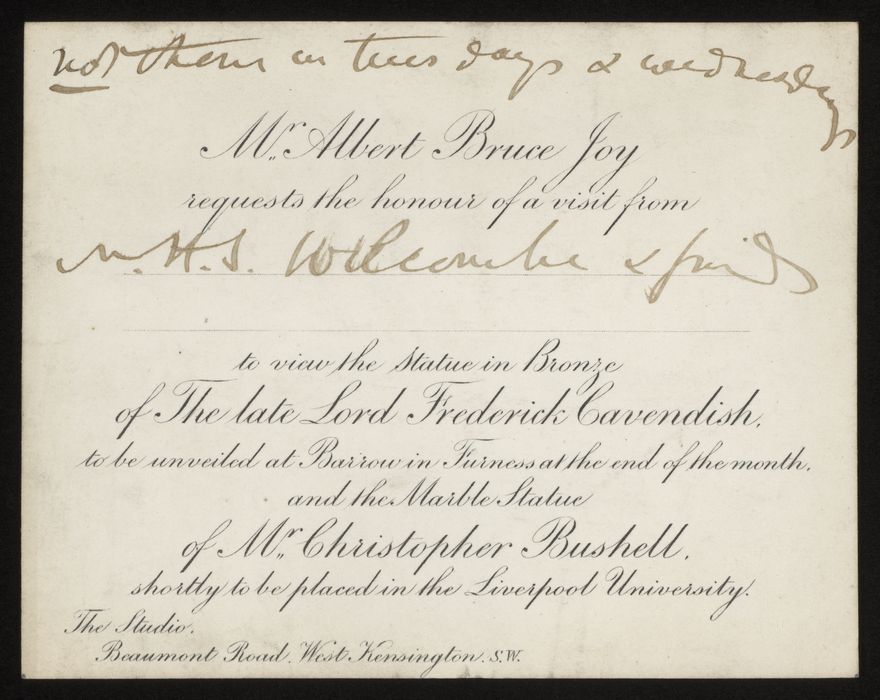 not there on tuesdays & wednesdays
Mr. Albert Bruce Joy
requests the honour of a visit from
H. S. Wellcombe & friends
to view the Statue in Bronze
of The late Lord Frederick Cavendish,
to be unveiled at Barrow in Furness at the end of the month,
and the Marble Statue
of Mr. Christopher Bushell,
shortly to be placed in the Liverpool University.
The Studio,
Beaumont Road, West Kensington. S.W.